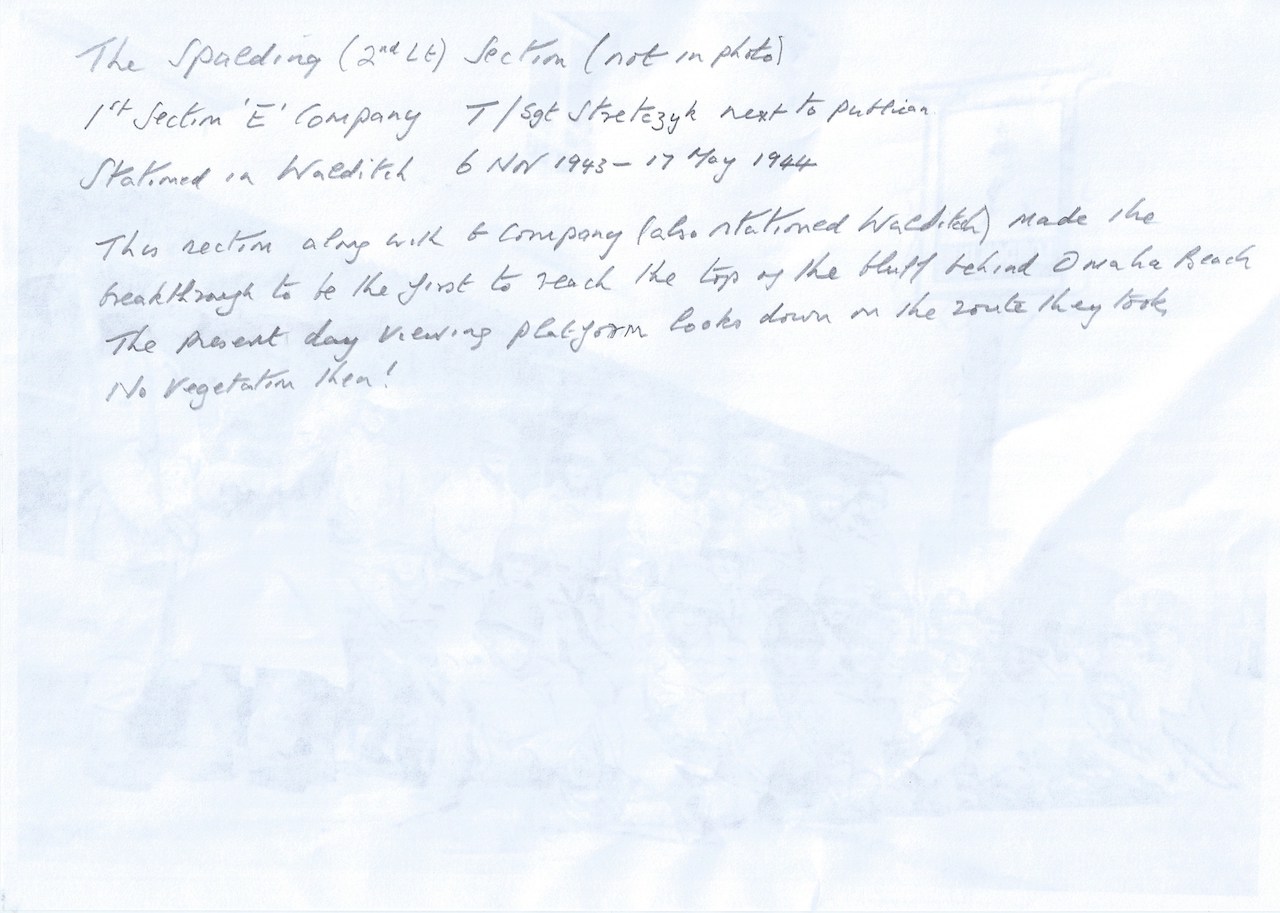 The Spalding (2nd Lt) Section (not in photo)
1st Section 'E' Company T/Sgt Stretczyk next to publican
Stationed in Walditch 6 Nov 1943 – 17 May 1944
This section along with G Company (also stationed Walditch) made the
breakthrough to be the first to reach the top of the bluff behind Omaha Beach
The present day viewing platform looks down on the route they took
No vegetation then!